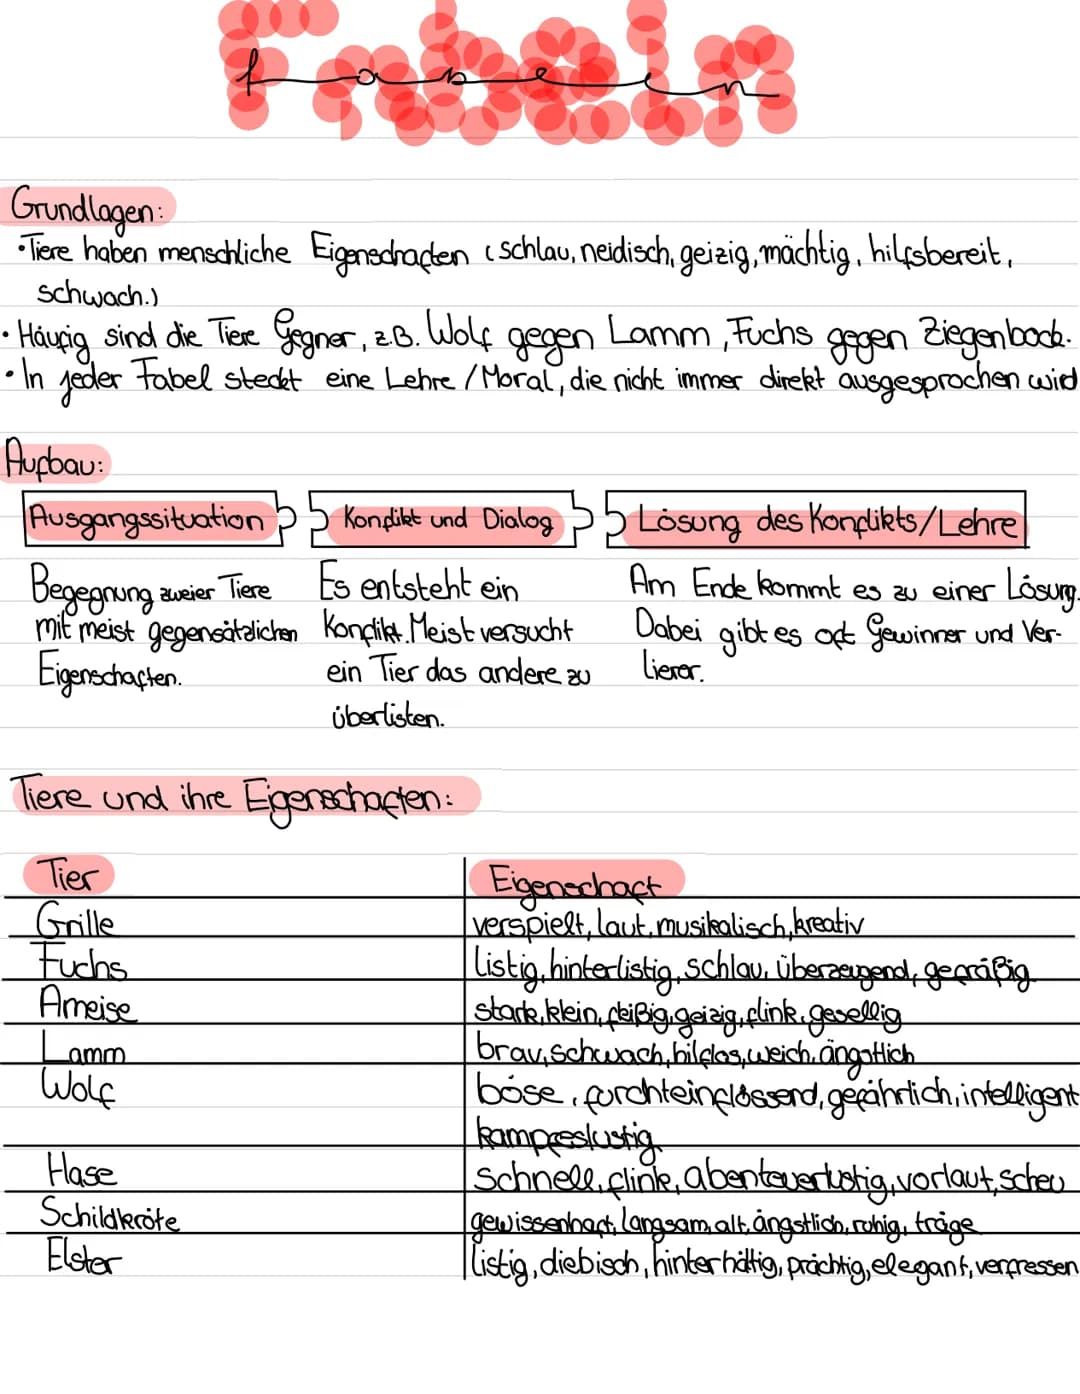 fabeln
Grundlagen:
•Tiere haben menschliche Eigenschaften (schlau, neidisch, geizig, mächtig, hilfsbereit,
schwach.)
•Häufig sind die Tiere Gegner, z.B. Wolf gegen Lamm, Fuchs gegen Ziegenbock.
•In jeder Fabel steckt eine Lehre/Moral, die nicht immer direkt ausgesprochen wird
Aufbau:
Ausgangssituation
Begegnung zweier Tiere
mit meist gegensätzlichen
Eigenschaften.
Konflikt und Dialog
Es entsteht ein
Konflikt. Meist versucht
ein Tier das andere zu
überlisten.
Lösung des Konflikts/Lehre
Am Ende kommt es zu einer Lösung.
Dabei gibt es oft Gewinner und Ver-
lierer.
Tiere und ihre Eigenschaften:
Tier Eigenschaft
Grille verspielt, laut, musikalisch, kreativ
Fuchs listig, hinterlistig, schlau, überzeugend, gefräßig
Ameise stark, klein, fleißig, geizig, flink, gesellig
Lamm brav, schwach, hilflos, weich, ängstlich
Wolf böse, furchteinflössend, gefährlich, intelligent
kampfeslustig
Hase schnell, flink, abenteuerlustig, vorlaut, scheu
Schildkröte gewissenhaft, langsam, alt, ängstlich, ruhig, träge
Elster listig, diebisch, hinterhältig, prächtig, elegant, verfressen